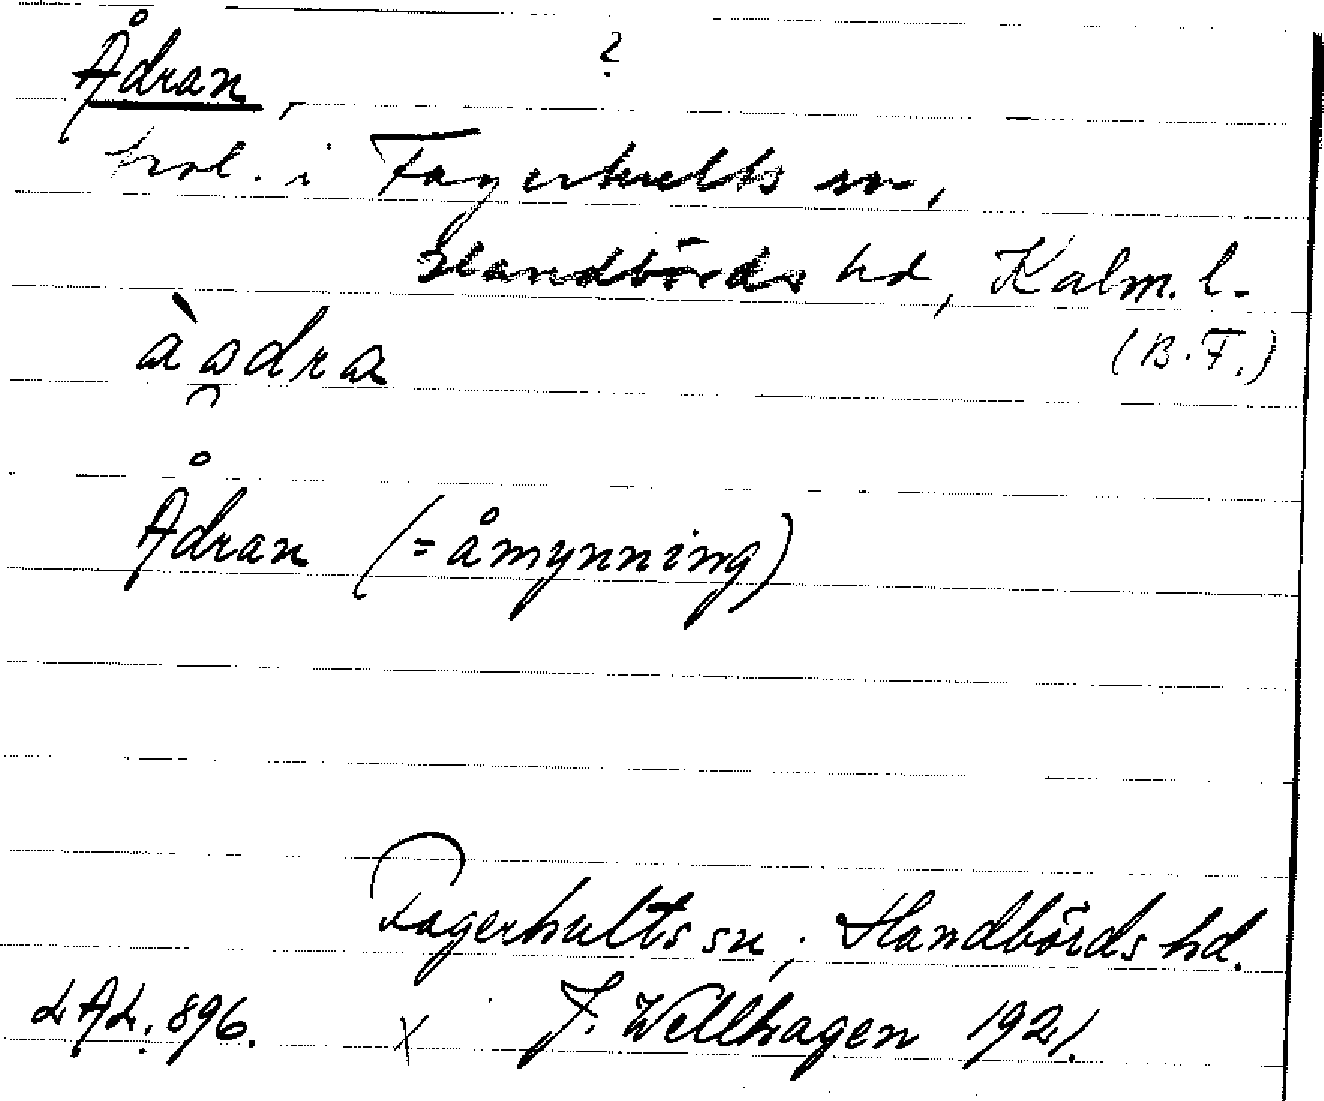 Ådran, ?
i Fagerhults sn,
Handbörds hd, Kalm. l.
(B.F.)
Ådran (= åmynning)
Fagerhults sn; Handbörds hd.
LAL. 896. X J. Wellhagen 1921.